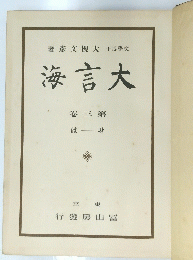 文學博士 大槻文彦著
大言海
第三卷
東京
冨山房發行